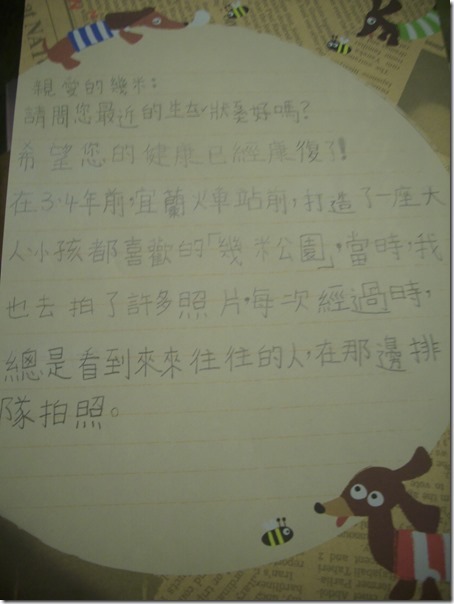 親愛的幾米:
請問您最近的生活狀況好嗎?
希望您的健康已經康復了!
在3.4年前,宜蘭火車站前,打造了一座大
人小孩都喜歡的「幾米公園」,當時,我
也去拍了許多照片,每次經過時,
總是看到來來往往的人,在那邊排
隊拍照。